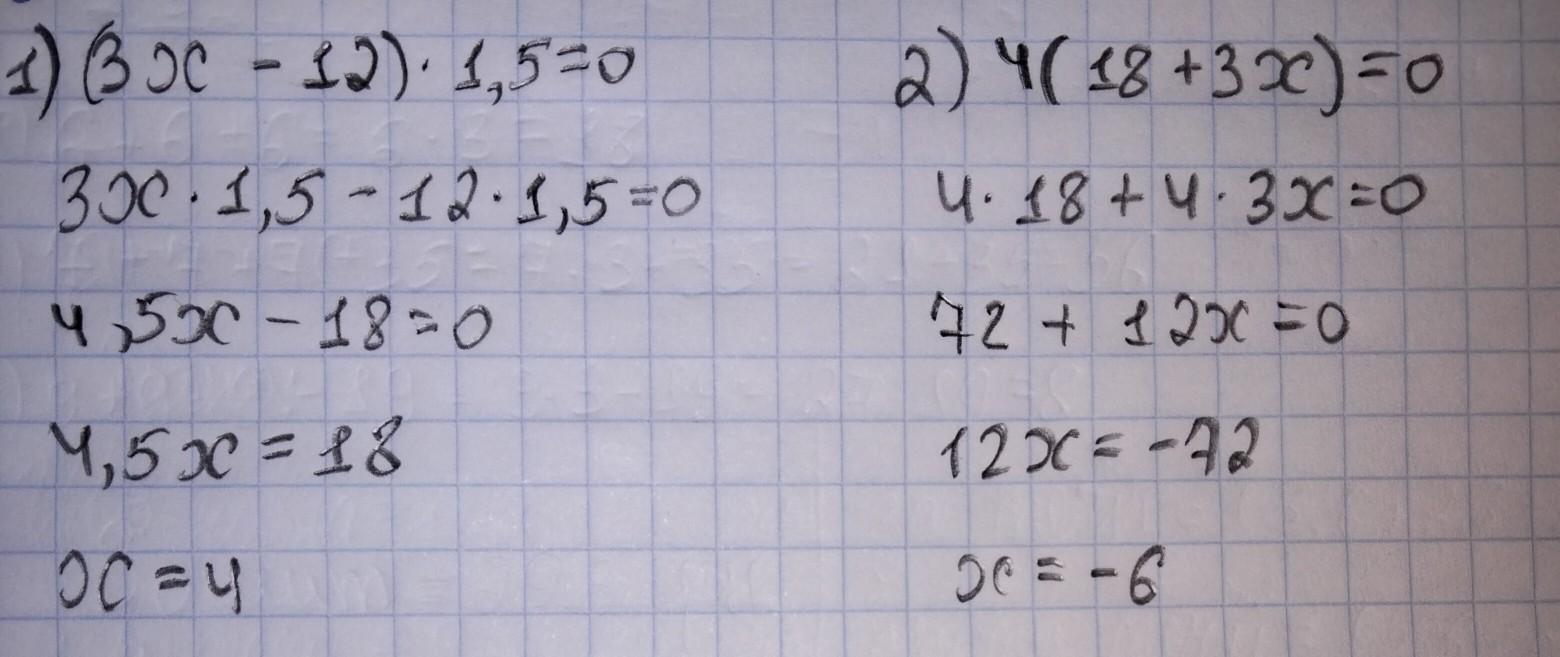 1) (3x - 12) · 1,5 = 0
3x · 1,5 - 12 · 1,5 = 0
4,5x - 18 = 0
4,5x = 18
x = 4
2) 4(18 + 3x) = 0
4 · 18 + 4 · 3x = 0
72 + 12x = 0
12x = -72
x = -6